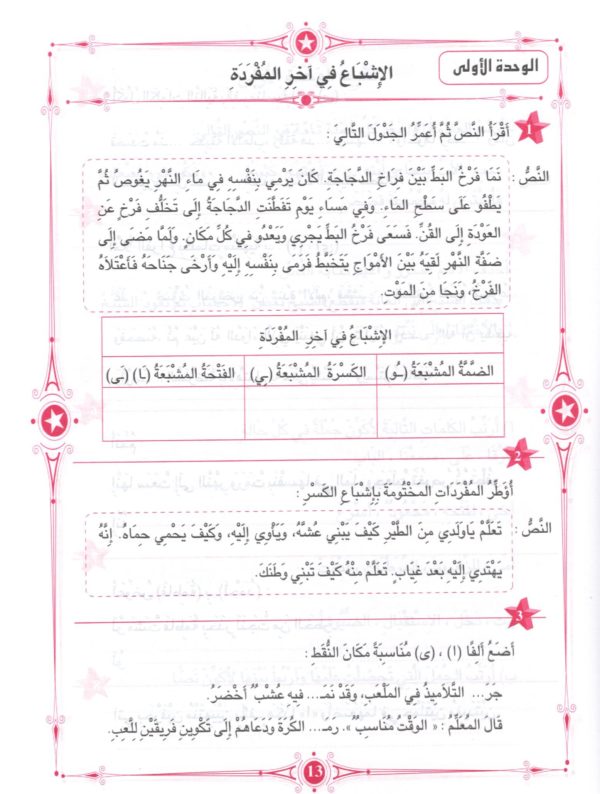 الوحدة الأولى
الإِشْبَاعُ فِي آخِرِ المُفْرَدَة
1 أَقْرَأُ النَّصَّ ثُمَّ أُعَمِّرُ الجَدْوَلَ التَّالِيَ :
النَّصُّ : نَمَا فَرْخُ البَطِّ بَيْنَ فِرَاخِ الدَّجَاجَةِ. كَانَ يَرْمِي بِنَفْسِهِ فِي مَاءِ النَّهْرِ يَغُوصُ ثُمَّ
يَطْفُو عَلَى سَطْحِ المَاءِ. وَفِي مَسَاءِ يَوْمٍ تَفَطَّنَتِ الدَّجَاجَةُ إِلَى تَخَلُّفِ فَرْخٍ عَنِ
العَوْدَةِ إِلَى القُنِّ. فَسَعَى فَرْخُ البَطِّ يَجْرِي وَيَعْدُو فِي كُلِّ مَكَانٍ. وَلَمَّا مَضَى إِلَى
ضَفَّةِ النَّهْرِ لَقِيَهُ بَيْنَ الأَمْوَاجِ يَتَخَبَّطُ فَرَمَى بِنَفْسِهِ إِلَيْهِ وَأَرْخَى جَنَاحَهُ فَاعْتَلاَهُ
الفَرْخُ، وَنَجَا مِنَ المَوْتِ.
الإِشْبَاعُ فِي آخِرِ المُفْرَدَةِ
الضَمَّةُ المُشْبَعَةُ (ـُو) الكَسْرَةُ المُشْبَعَةُ (ـِي) الفَتْحَةُ المُشْبَعَةُ (ـَا) (ـَى)
2
أُؤَطِّرُ المُفْرَدَاتِ المَخْتُومَةَ بِإِشْبَاعِ الكَسْرِ :
النَّصُّ : تَعَلَّمْ يَاوَلَدِي مِنَ الطَّيْرِ كَيْفَ يَبْنِي عُشَّهُ، وَيَأْوِي إِلَيْهِ، وَكَيْفَ يَحْمِي حِمَاهُ. إِنَّهُ
يَهْتَدِي إِلَيْهِ بَعْدَ غِيَابٍ. تَعَلَّمْ مِنْهُ كَيْفَ تَبْنِي وَطَنَكَ.
3
أَضَعُ أَلِفًا (ا) ، (ى) مُنَاسِبَةً مَكَانَ النُّقَطِ :
جر... التَّلاَمِيذُ فِي المَلْعَبِ، وَقَدْ نَمَـ... فِيهِ عُشْبٌ أَخْضَرُ.
قَالَ المُعَلِّمُ : « الوَقْتُ مُنَاسِبٌ ». رَمَـ... الكُرَةَ وَدَعَاهُمْ إِلَى تَكْوِينِ فَرِيقَيْنِ لِلَّعِبِ.
13